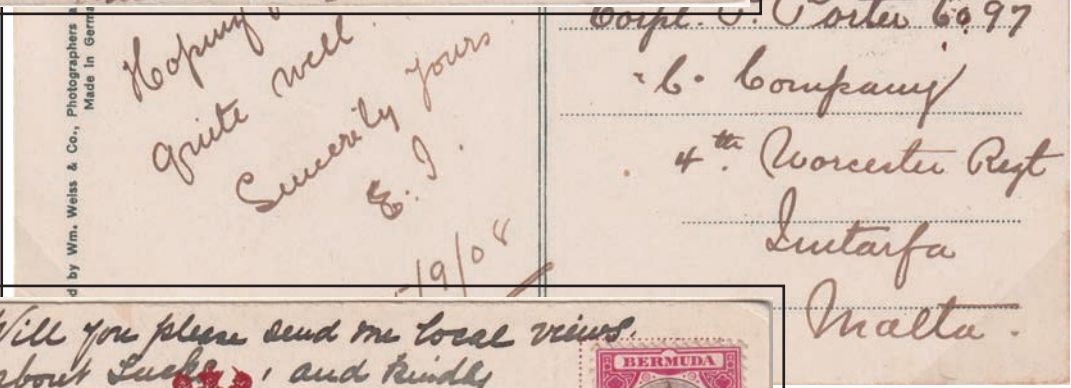 d by Wm. Weiss & Co., Photographers
Made in Germ
Hoping
quite well
Sincerily yours
E. I.
19/08
Corpl. Porter 6097
"C" Company
4th. Worcester Regt
Imtarfa
Malta.
Will you please send me local views.
about and kindly
BERMUDA